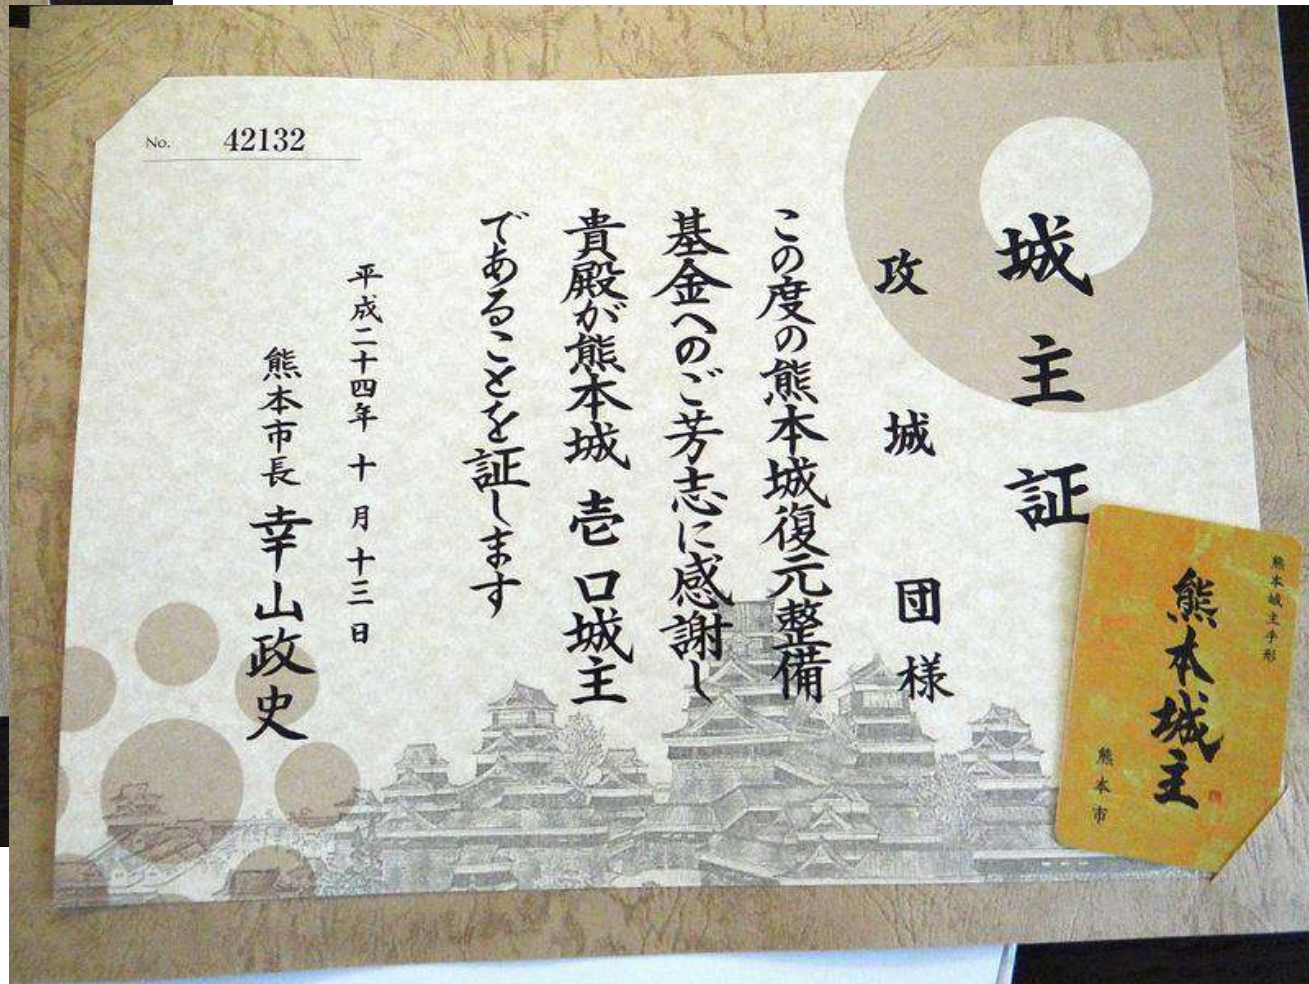 No. 42132
城主証
攻城団様
この度の熊本城復元整備
基金へのご芳志に感謝し
貴殿が熊本城壱口城主
であることを証します
平成二十四年十月十三日
熊本市長 幸山政史
熊本城主手形
熊本城主
熊本市